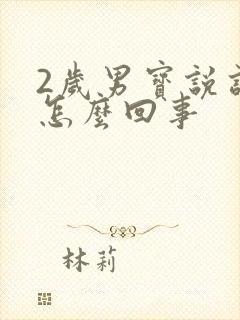 2歲男寶說
怎麼回事
林莉